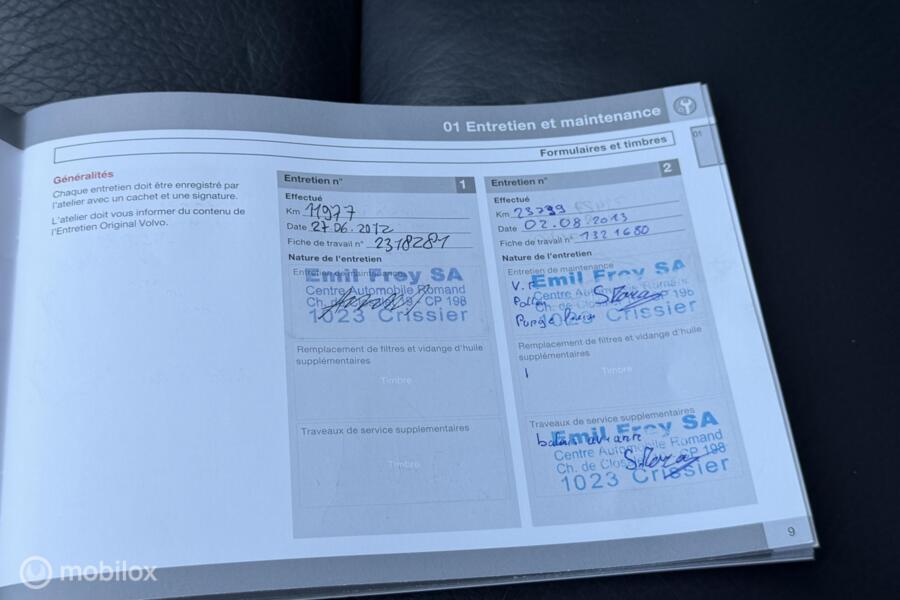 01 Entretien et maintenance
01
Formulaires et timbres
Généralités
Chaque entretien doit être enregistré par
l'atelier avec un cachet et une signature.
L'atelier doit vous informer du contenu de
l'Entretien Original Volvo.
Entretien n° 1
Effectué
Km 11977
Date 27.06.2012
Fiche de travail n° 2318281
Nature de l'entretien
Entretien de maintenance
Emil Frey SA
Centre Automobile Romand
Ch. de CP 198
1023 Crissier
Remplacement de filtres et vidange d'huile
supplémentaires
Timbre
Traveaux de service supplementaires
Timbre
Entretien n° 2
Effectué
Km 23799
Date 02.08.2013
Fiche de travail n° 1321680
Nature de l'entretien
Entretien de maintenance
Emil Frey SA
Pollen
Centre Automobile Romand
Ch. de CP 198
Purge
1023 Crissier
Remplacement de filtres et vidange d'huile
supplémentaires
Timbre
Travaux de service supplémentaires
Emil Frey SA
Centre Automobile Romand
Ch. de CP 198
1023 Crissier
9
mobilox